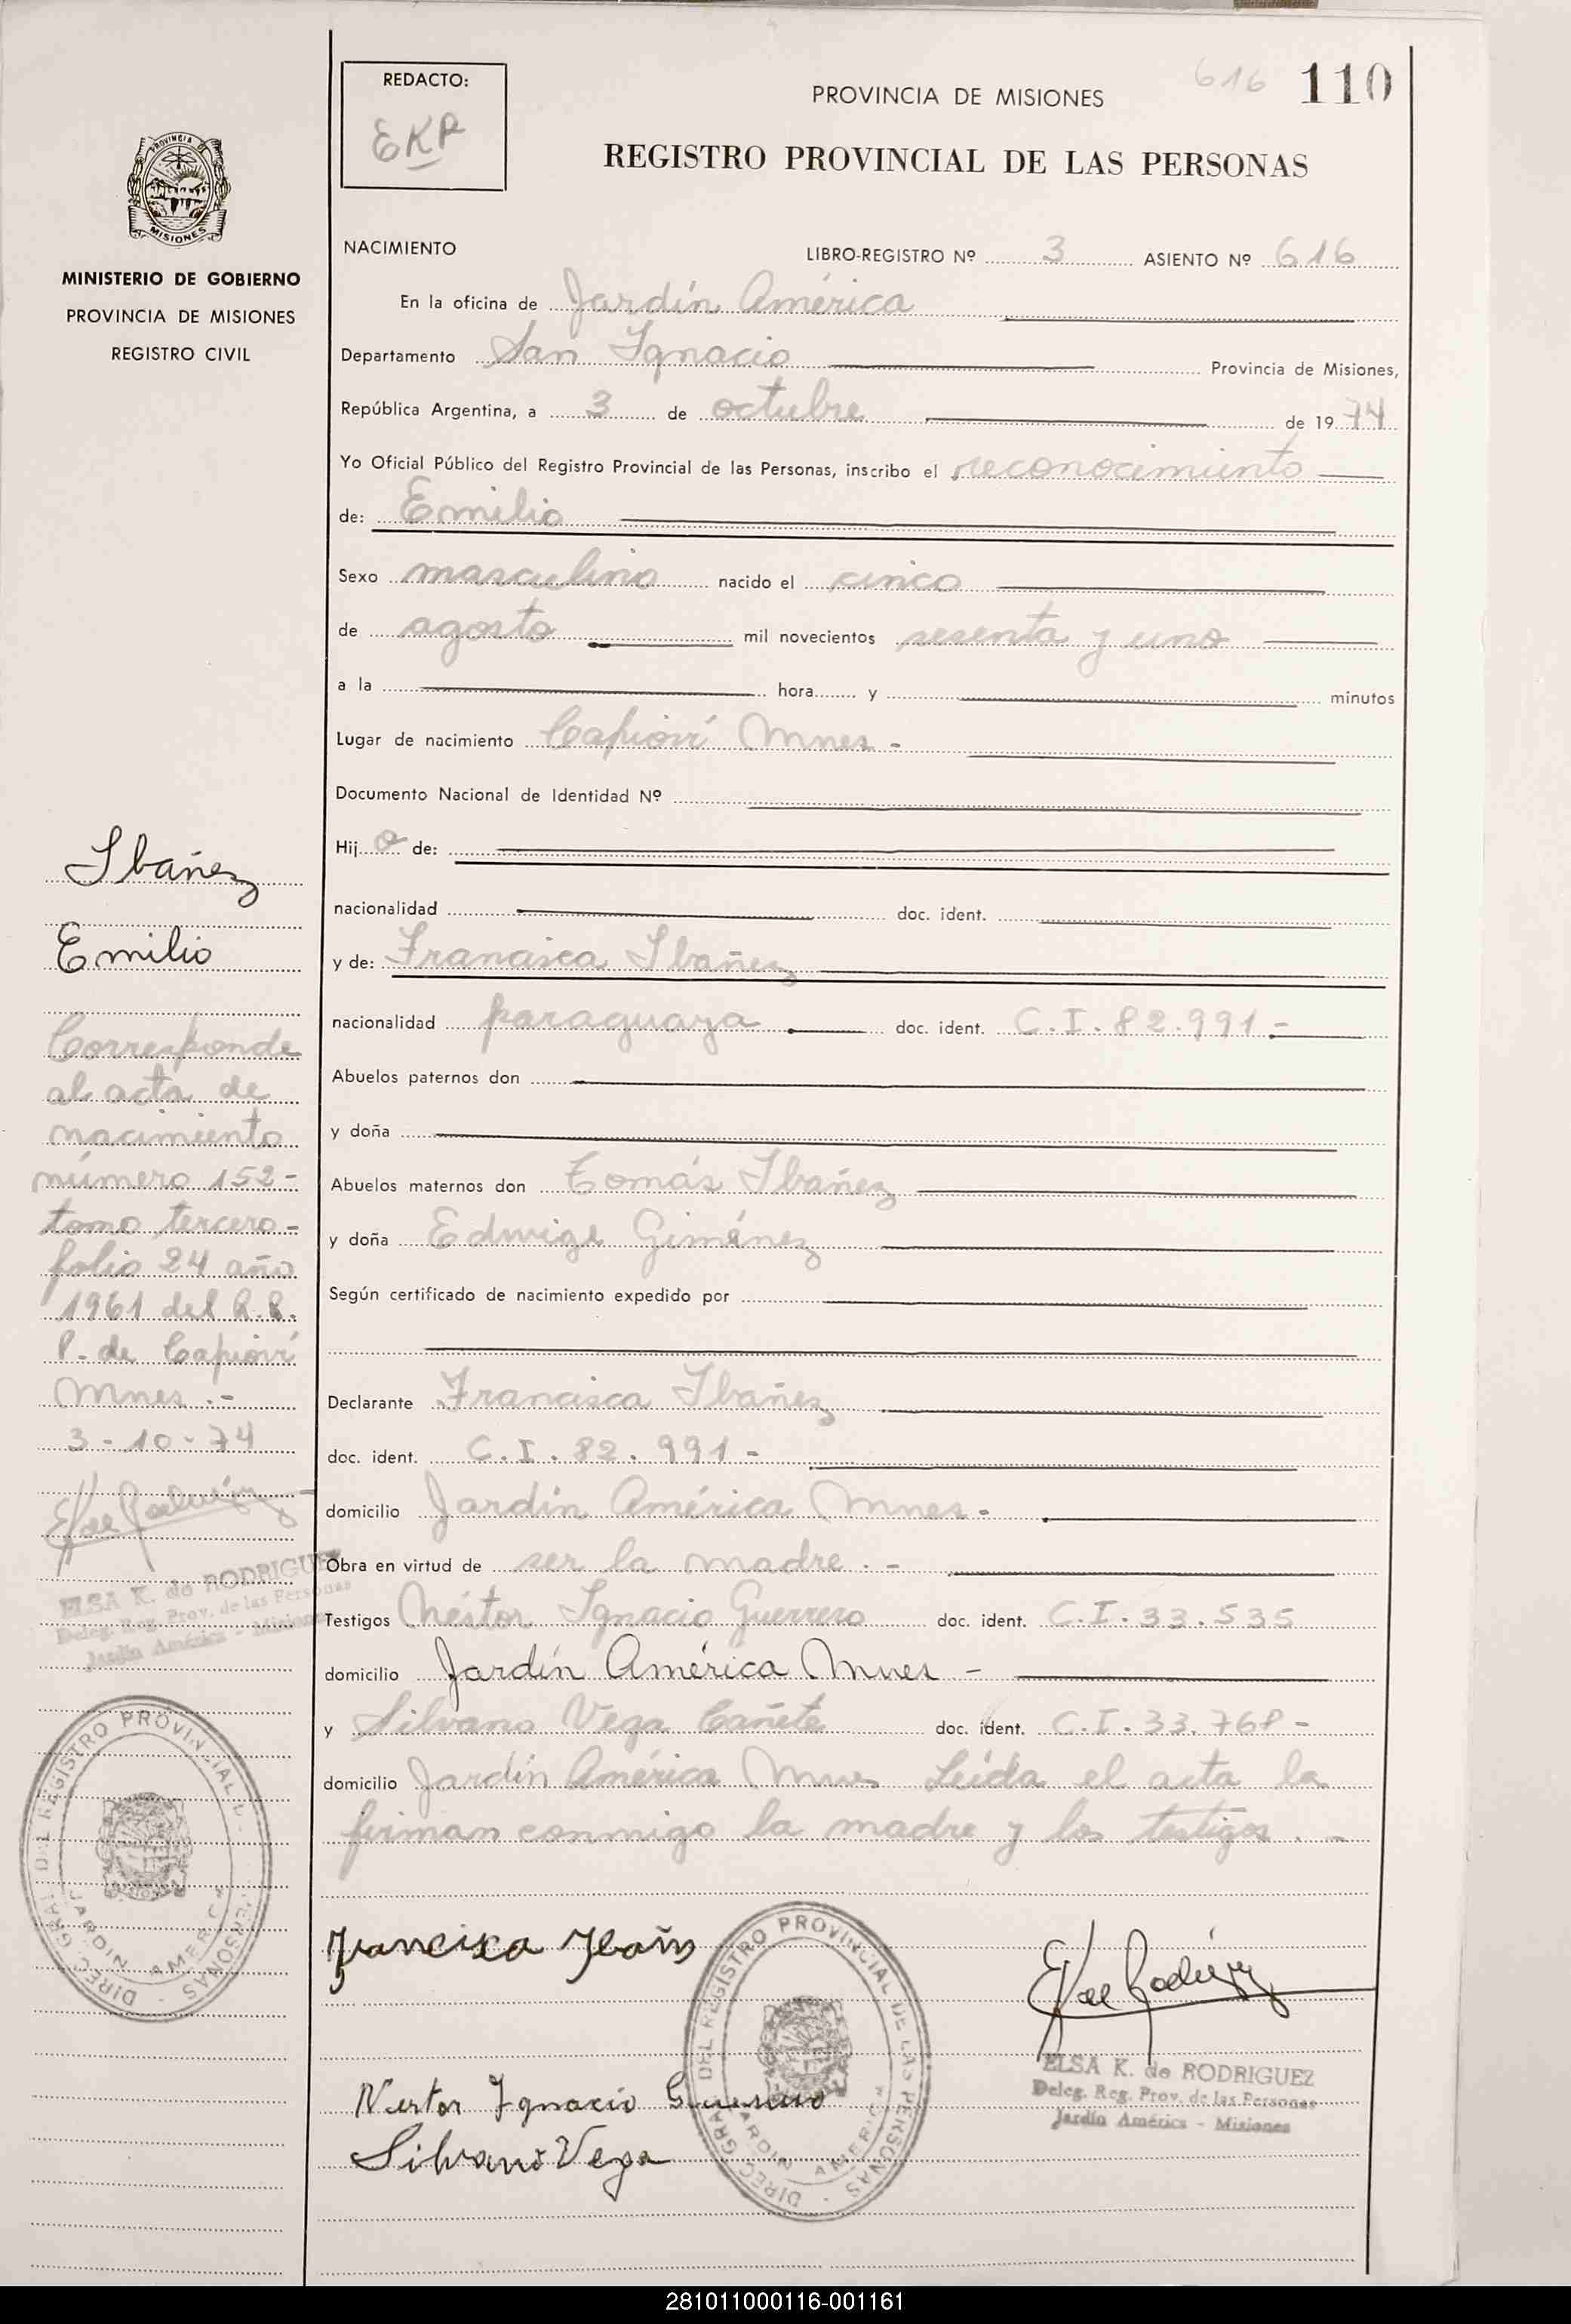 616 110
REDACTO:
EKR
PROVINCIA DE MISIONES
REGISTRO PROVINCIAL DE LAS PERSONAS
PROVINCIA DE
MISIONES
MINISTERIO DE GOBIERNO
PROVINCIA DE MISIONES
REGISTRO CIVIL
NACIMIENTO LIBRO-REGISTRO Nº 3 ASIENTO Nº 616
En la oficina de Jardín América
Departamento San Ignacio Provincia de Misiones,
República Argentina, a 3 de octubre de 1974
Yo Oficial Público del Registro Provincial de las Personas, inscribo el reconocimiento
de: Emilio
Sexo masculino nacido el cinco
de agosto mil novecientos sesenta y uno
a la hora y minutos
Lugar de nacimiento Capioví Mnes -
Documento Nacional de Identidad Nº
Hijo de:
nacionalidad doc. ident.
y de: Francisca Ibañez
nacionalidad paraguaya doc. ident. C.I. 82.991 -
Abuelos paternos don
y doña
Abuelos maternos don Tomás Ibañez
y doña Edwige Giménez
Según certificado de nacimiento expedido por
Declarante Francisca Ibañez
doc. ident. C.I. 82.991 -
domicilio Jardín América Mnes -
Obra en virtud de ser la madre . -
Testigos Néstor Ignacio Guerrero doc. ident. C.I. 33.535
domicilio Jardín América Mnes -
y Silvano Vega Cañete doc. ident. C.I. 33.768 -
domicilio Jardín América Mnes Leída el acta la
firman conmigo la madre y los testigos . -
Ibañez
Emilio
Corresponde
al acta de
nacimiento
número 152 -
tomo tercero -
folio 24 año
1961 del R.P.
P. de Capioví
Mnes . -
3 - 10 - 74
ELSA K. de RODRIGUEZ
Deleg. Reg. Prov. de las Personas
Jardín América - Misiones
DIREC. GRAL. DEL REGISTRO PROVINCIAL DE LAS PERSONAS
JARDIN AMERICA
Francisca Ibañs
Nestor Ignacio Guerrero
Silvano Vega
DIREC. GRAL. DEL REGISTRO PROVINCIAL DE LAS PERSONAS
JARDIN AMERICA
EK de Rodríguez
ELSA K. de RODRIGUEZ
Deleg. Reg. Prov. de las Personas
Jardín América - Misiones
281011000116-001161